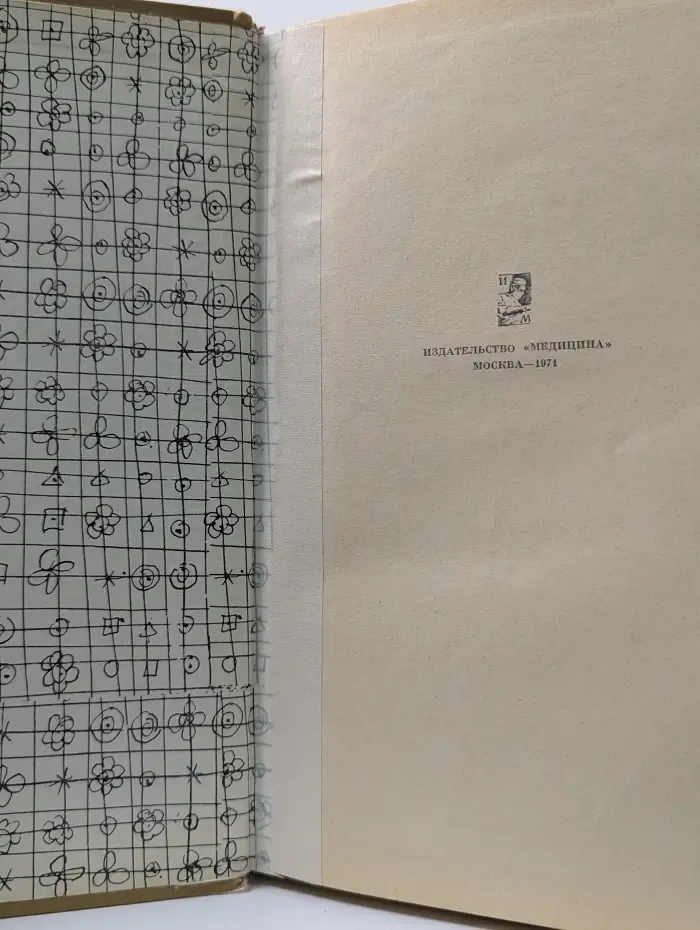 И
М
ИЗДАТЕЛЬСТВО «МЕДИЦИНА»
МОСКВА—1971